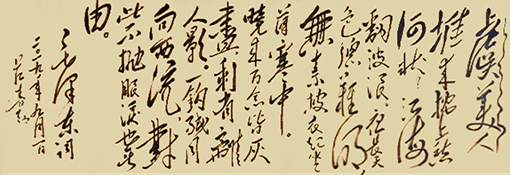 虞美人
堆来枕上愁
何状江海
翻波浪夜长天
色总难明
無奈披衣起坐
薄寒中。
晓来百念皆灰
尽剩有離
人影一钩残月
向西流對
此不抛眼泪也無
由。
毛泽东词
年九月一日